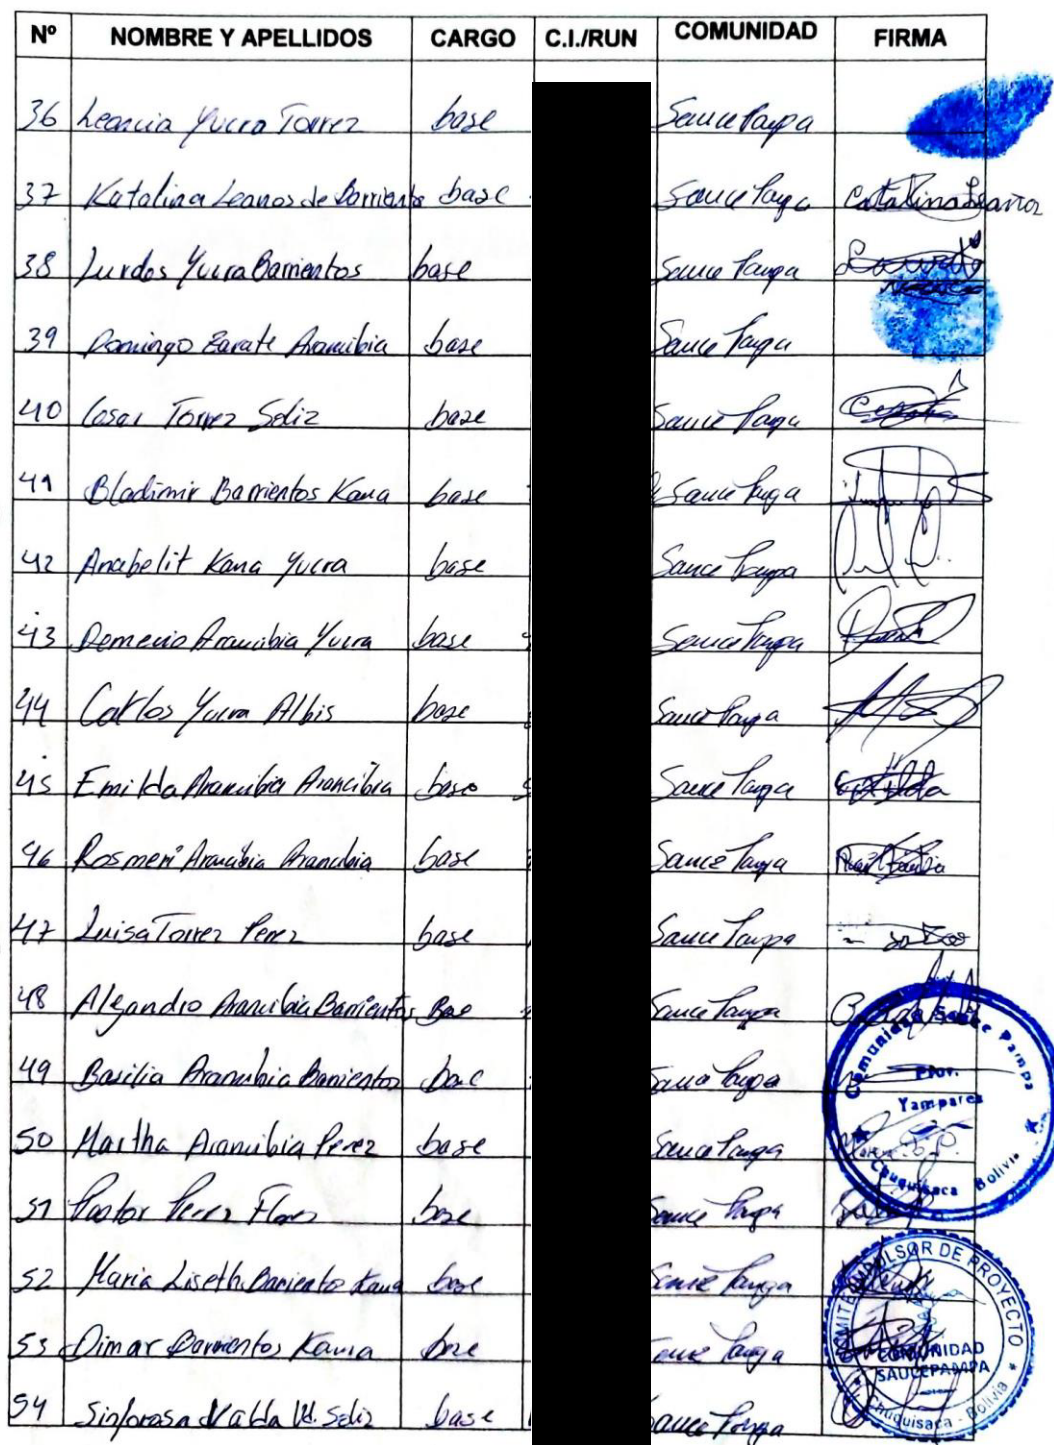 Nº NOMBRE Y APELLIDOS CARGO C.I./RUN COMUNIDAD FIRMA
36 Leoncia Yucra Torrez base Sauce Pampa
37 Katalina Leanos de Barrientos base Sauce Pampa Catalina Leaños
38 Lurdes Yucra Barrientos base Sauce Pampa
39 Domingo Zarate Arancibia base Sauce Pampa
40 Cesar Torrez Soliz base Sauce Pampa
41 Bladimir Barrientos Kana base Sauce Pampa
42 Anabelit Kana Yucra base Sauce Pampa
43 Demecio Arancibia Yucra base Sauce Pampa
44 Carlos Yucra Albis base Sauce Pampa
45 Emilda Arancibia Arancibia base Sauce Pampa
46 Rosmeri Arancibia Arancibia base Sauce Pampa
47 Luisa Torrez Perez base Sauce Pampa
48 Alejandro Arancibia Barrientos Base Sauce Pampa
49 Basilia Arancibia Barrientos base Sauce Pampa
50 Martha Arancibia Perez base Sauce Pampa
51 Pastor Perez Flores base Sauce Pampa
52 Maria Liseth Barriento Kana base Sauce Pampa
53 Dimar Barrientos Kana base Sauce Pampa
54 Sinforosa Valda base Sauce Pampa
Comunidad Sauce Pampa
Prov.
Yamparez
Chuquisaca Bolivia
COMITE IMPULSOR DE PROYECTO
COMUNIDAD
SAUCEPAMPA
Chuquisaca - Bolivia